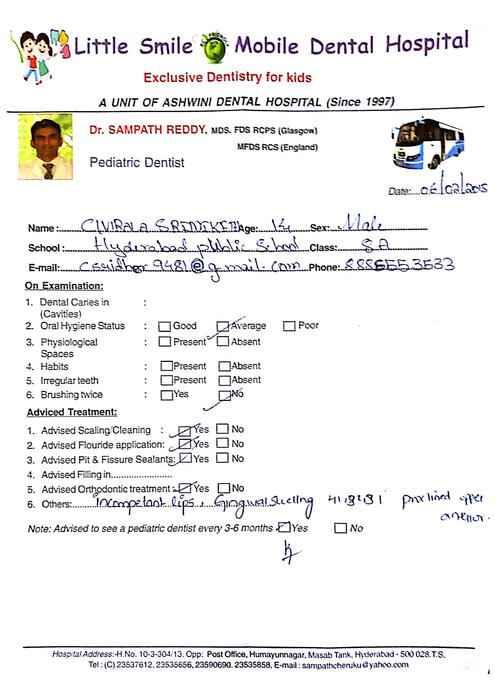 Little Smile Mobile Dental Hospital
Exclusive Dentistry for kids
A UNIT OF ASHWINI DENTAL HOSPITAL (Since 1997)
Dr. SAMPATH REDDY, MDS. FDS RCPS (Glasgow)
MFDS RCS (England)
Pediatric Dentist
Date: 06/02/2015
Name: CIVIRALA SRINIKETH Age: 14 Sex: Male
School: Hyderabad public School Class: 8A
E-mail: cssidhor9481@gmail.com Phone: 8886553533
On Examination:
1. Dental Caries in :
(Cavities)
2. Oral Hygiene Status : Good Average Poor
3. Physiological : Present Absent
Spaces
4. Habits : Present Absent
5. Irregular teeth : Present Absent
6. Brushing twice : Yes No
Adviced Treatment:
1. Advised Scaling/Cleaning : Yes No
2. Advised Flouride application: Yes No
3. Advised Pit & Fissure Sealants: Yes No
4. Advised Filling in........................
5. Advised Orthodontic treatment: Yes No
6. Others: Incompetant lips, Gingival Swelling proclined upper
Note: Advised to see a pediatric dentist every 3-6 months Yes No
Hospital Address:-H.No. 10-3-304/13, Opp: Post Office, Humayunnagar, Masab Tank, Hyderabad - 500 028.T.S.
Tel : (C) 23537612, 23535656, 23590690, 23535858, E-mail : sampathcheruku@yahoo.com